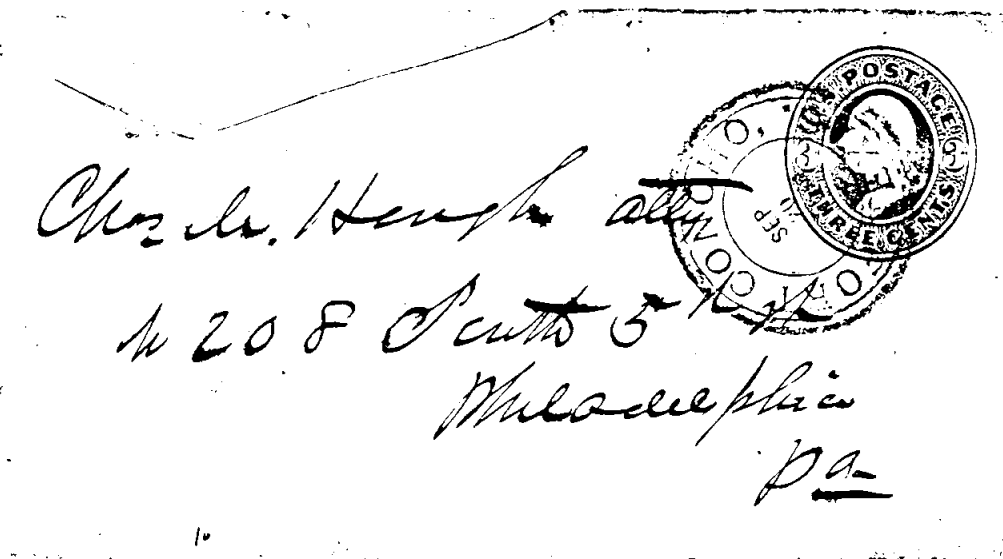 POSTAGE
3 3
THREE CENTS
SEP
Hough atty
No 208 South 5th St
Philadelphia
Pa